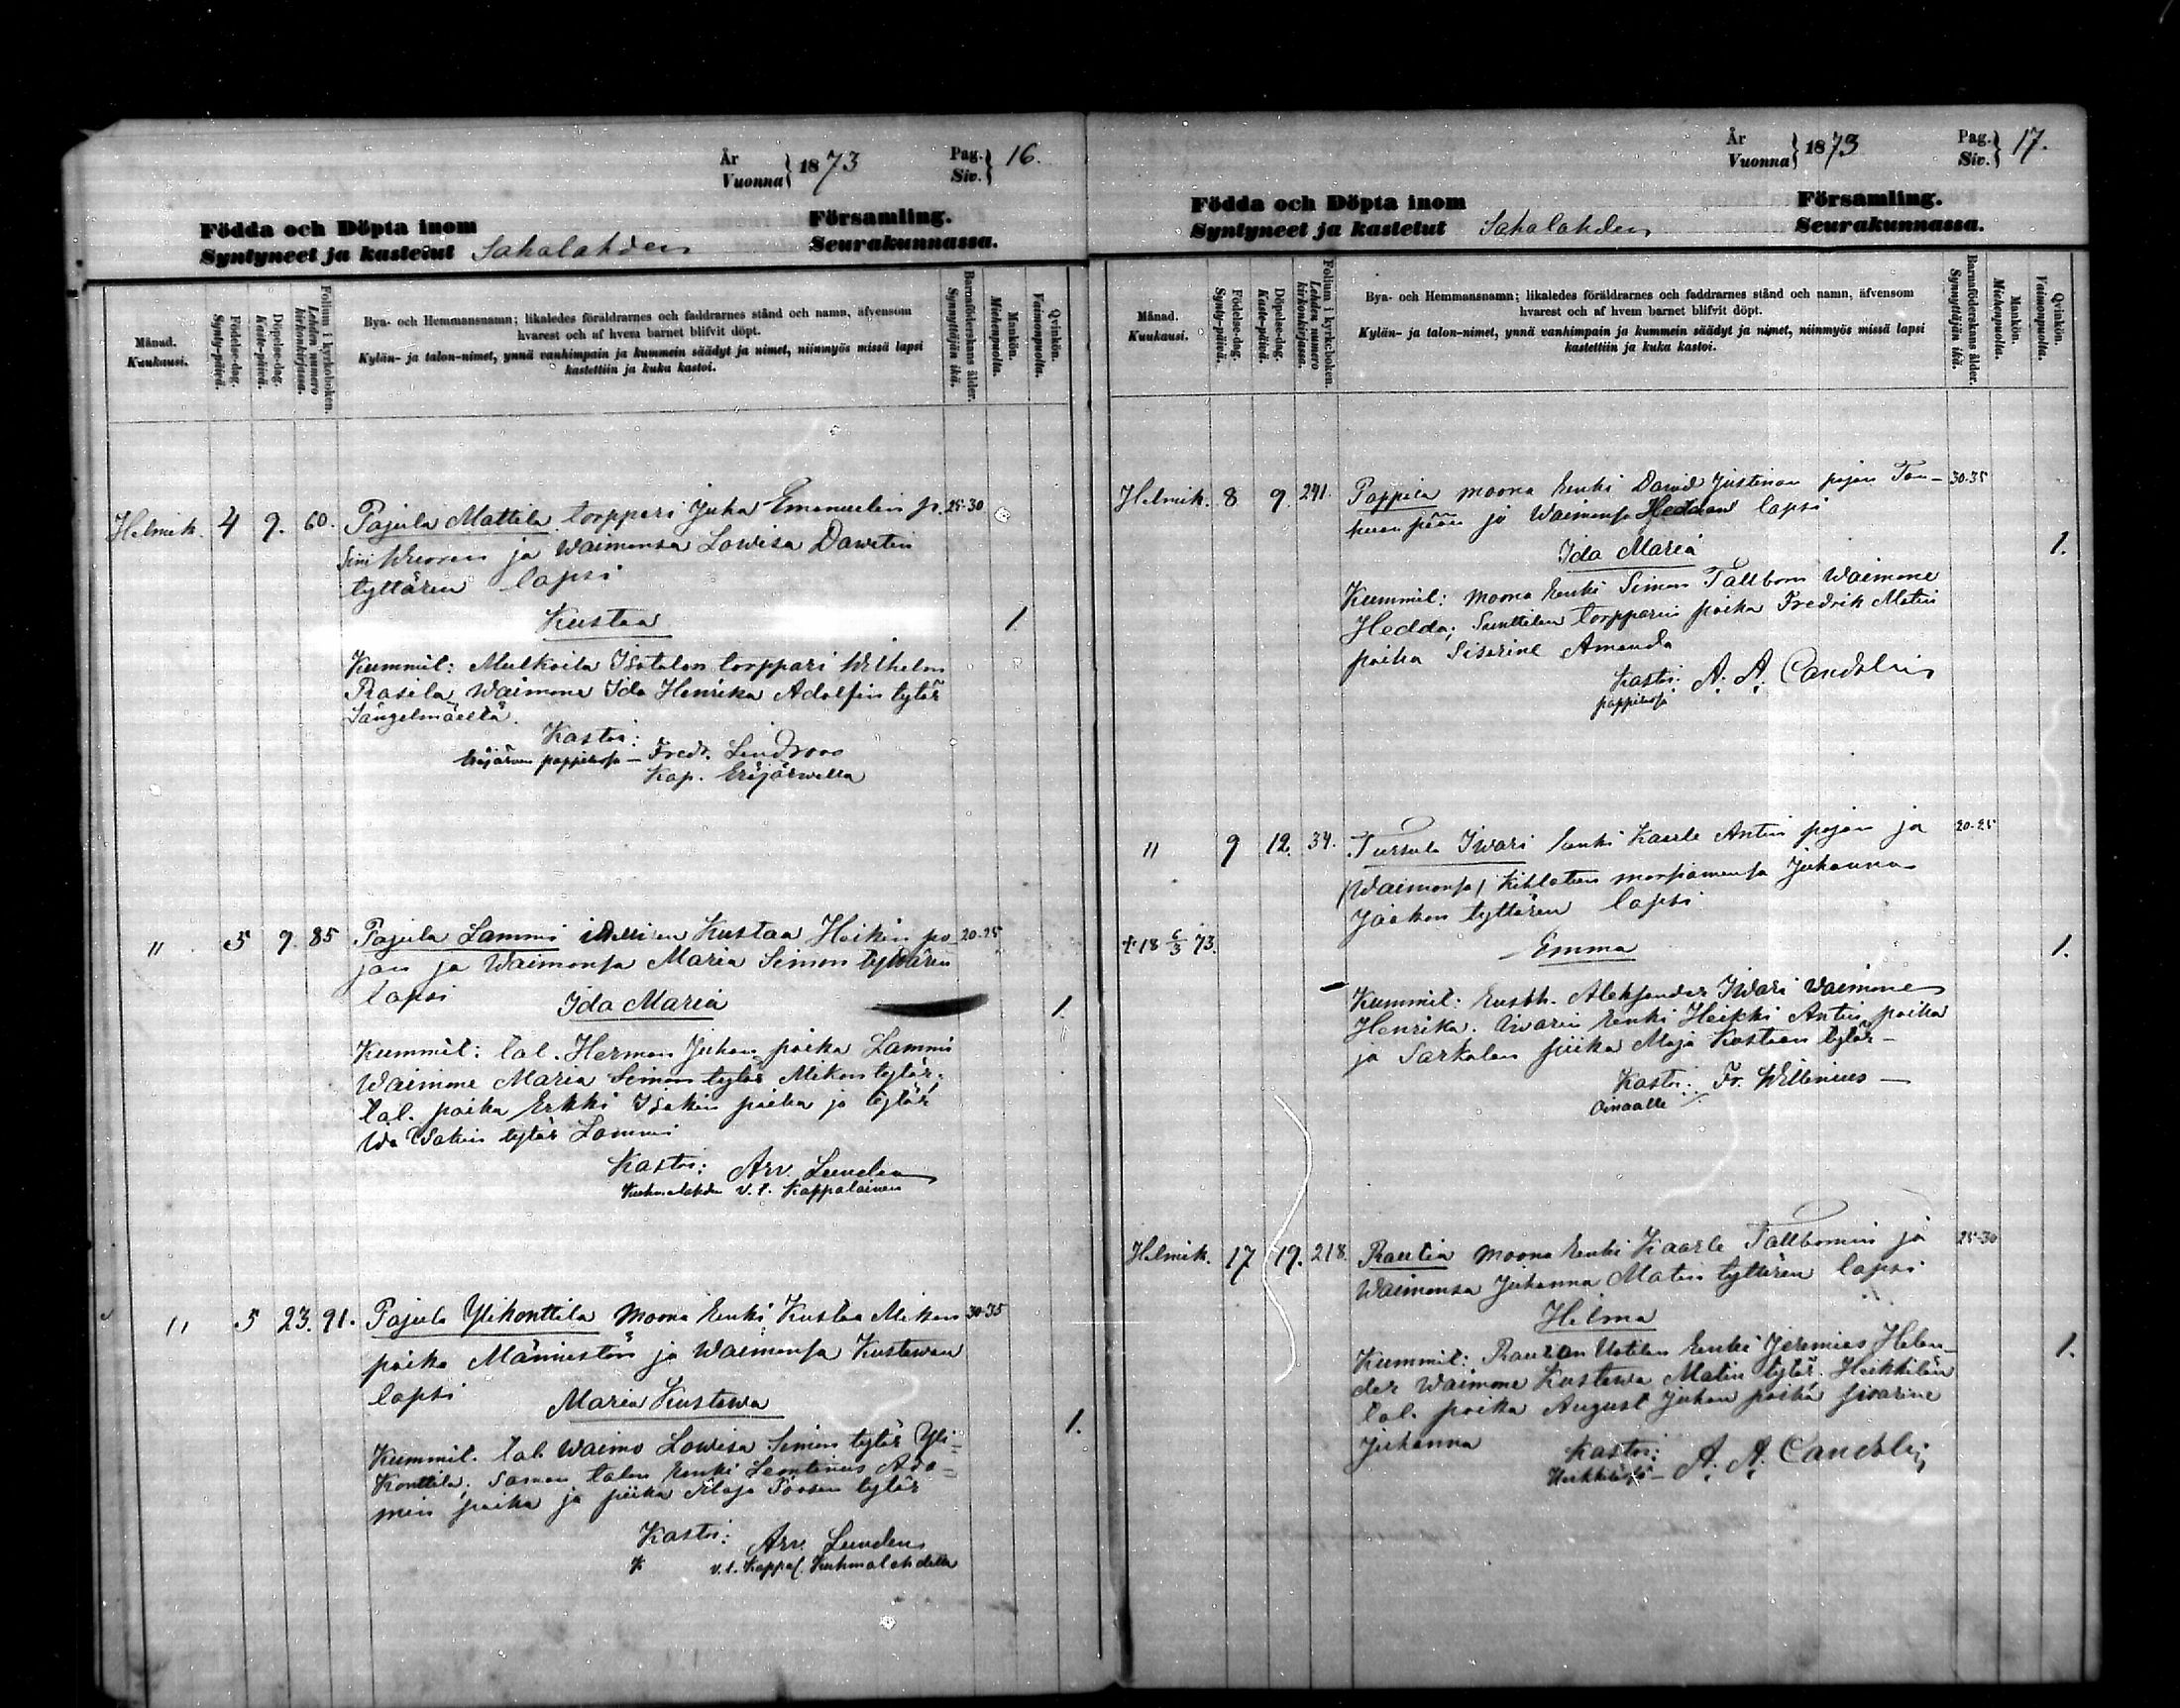 År
Vuonna } 1873
Pag.
Siv. } 16.
Födda och Döpta inom Församling.
Syntyneet ja kastetut Sahalahden Seurakunnassa.
Månad.
Kuukausi.
Födelse-dag.
Synty-päivä.
Döpelse-dag.
Kaste-päivä.
Folium i kyrkoboken.
Lehden numero
kirkonkirjassa.
Bya- och Hemmansnamn; likaledes föräldrarnes och faddrarnes stånd och namn, äfvensom
hvarest och af hvem barnet blifvit döpt.
Kylän- ja talon-nimet, ynnä vanhimpain ja kummein säädyt ja nimet, niinmyös missä lapsi
kastettiin ja kuka kastoi.
Barnaföderskans ålder.
Synnyttäjän ikä.
Mankön.
Miehenpuolta.
Qvinkön.
Vaimonpuolta.
Helmik. 4 9. 60. Pajula Mattila torppari Juha Emanuelin p. 25-30
ja Waimonsa Lowisa Dawitin
tyttären lapsi
Kustaa 1.
Kummit: Mulkoila Isotalon torppari Wilhelm
Rasila Waimone Ida Henrika Adolfin tytär
Sängelmäeltä.
Kastoi: Fredr. Lindroos
Eräjärven pappilassa
Kap. Eräjärwellä
" 5 9. 85 Pajula Lammi Kustaa Heikin po- 20-25
jan ja Waimonsa Maria Simon tyttären
lapsi Ida Maria 1.
Kummit: tal. Herman Juhan poika Lammi
Waimone Maria Simon tytär Mikon tytär;
tal. poika Erkki Isakin poika ja tytär
Ida Isakin tytär Lammi
Kastoi: Arv. Lunden
Kuhmalahden v. t. Kappalainen
" 5 23. 91. Pajula Ylikonttila moona Renki Kustaa Mikon 30-35
poika Männistön ja Waimonsa Kustawan
lapsi Maria Kustawa 1.
Kummit. tal. Waimo Lowisa Simon tytär Yli=
Konttila; saman talon Renki Leontinus Ada=
min poika ja piika Maja tytär
Kastoi: Arv. Lunden
K v. t. Kappal. Kuhmalahdella
År
Vuonna } 1873
Pag.
Siv. } 17.
Födda och Döpta inom Församling.
Syntyneet ja kastetut Sahalahden Seurakunnassa.
Månad.
Kuukausi.
Födelse-dag.
Synty-päivä.
Döpelse-dag.
Kaste-päivä.
Folium i kyrkoboken.
Lehden numero
kirkonkirjassa.
Bya- och Hemmansnamn; likaledes föräldrarnes och faddrarnes stånd och namn, äfvensom
hvarest och af hvem barnet blifvit döpt.
Kylän- ja talon-nimet, ynnä vanhimpain ja kummein säädyt ja nimet, niinmyös missä lapsi
kastettiin ja kuka kastoi.
Barnaföderskans ålder.
Synnyttäjän ikä.
Mankön.
Miehenpuolta.
Qvinkön.
Vaimonpuolta.
Helmik. 8 9. 241. Pappila moona Renki David Justinan pojan 30-35
ja Waimonsa Heddan lapsi
Ida Maria 1.
Kummit: moona Renki Simon Tallbom Waimone
Hedda; Sunttilan torpparin poika Fredrik Matin
poika Sisarine Amanda
Kastoi: A. A. Candolin
pappilassa
" 9 12. 34. Tursula Iwari Renki Kaarle Antin pojan ja 20-25
(Waimonsa) Kihlatun morsiamensa Juhanna
Jaakon tyttären lapsi
+ 18 6/3 73. Emma 1.
Kummit: Rusth. Aleksander Iwari Waimone
Henrika. Iwarin Renki Heikki Antin poika
ja Sarkalan piika Maja Kustaan tytär
Kastoi: Fr. Willenius
Oinaalla
Helmik. 17 19. 218. Rautia moona Renki Kaarle Tallbomin ja 25-30
Waimonsa Juhanna Matin tyttären lapsi
Helma
Kummit: Rautian Uotilan Renki Jeremias Helan- 1.
der Waimone Kustawa Matin tytär. Heikkilän
tal. poika August Juhan poika sisarine
Juhanna Kastoi: A. A. Candolin
Heikkilässä